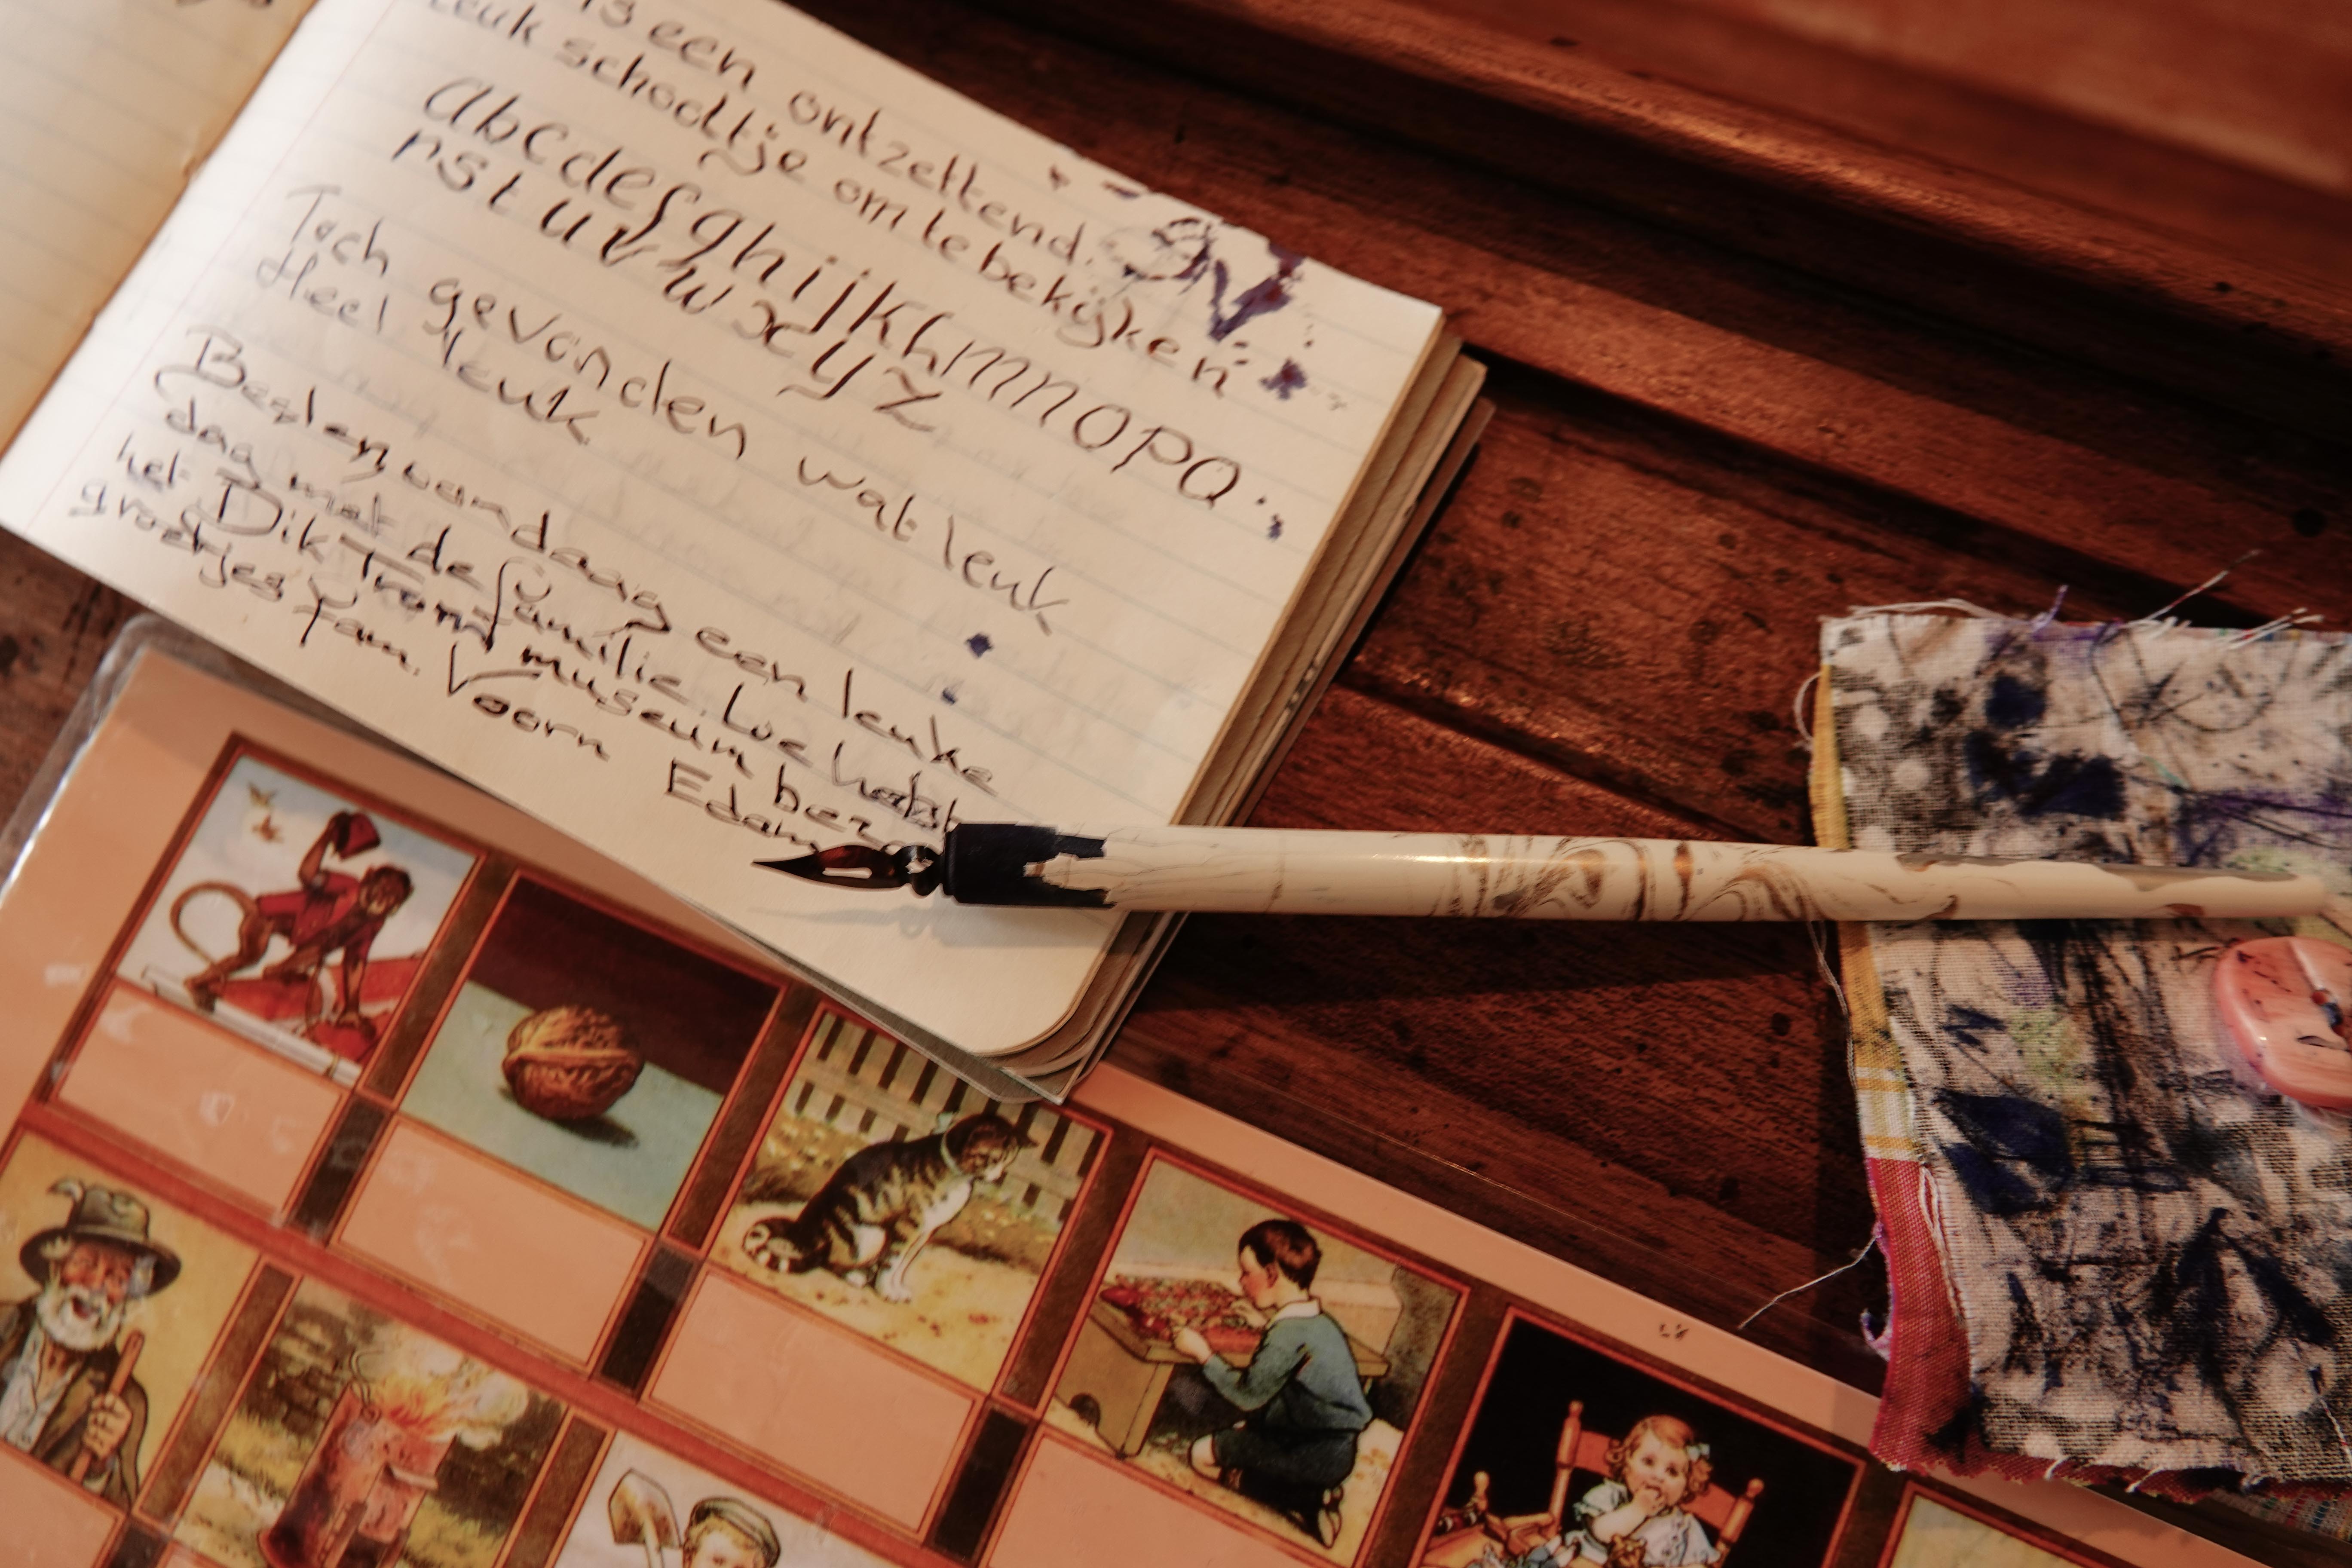 is een ontzettend.
leuk schooltje om te bekijken
abcdefghijklmnopq
rstuvwxyz
Toch gevonden wat leuk
Heel leuk
Beslen vandaag een leuke
dag met de familie
het Dik Trom museum
groetjes fam. Voorn Edam